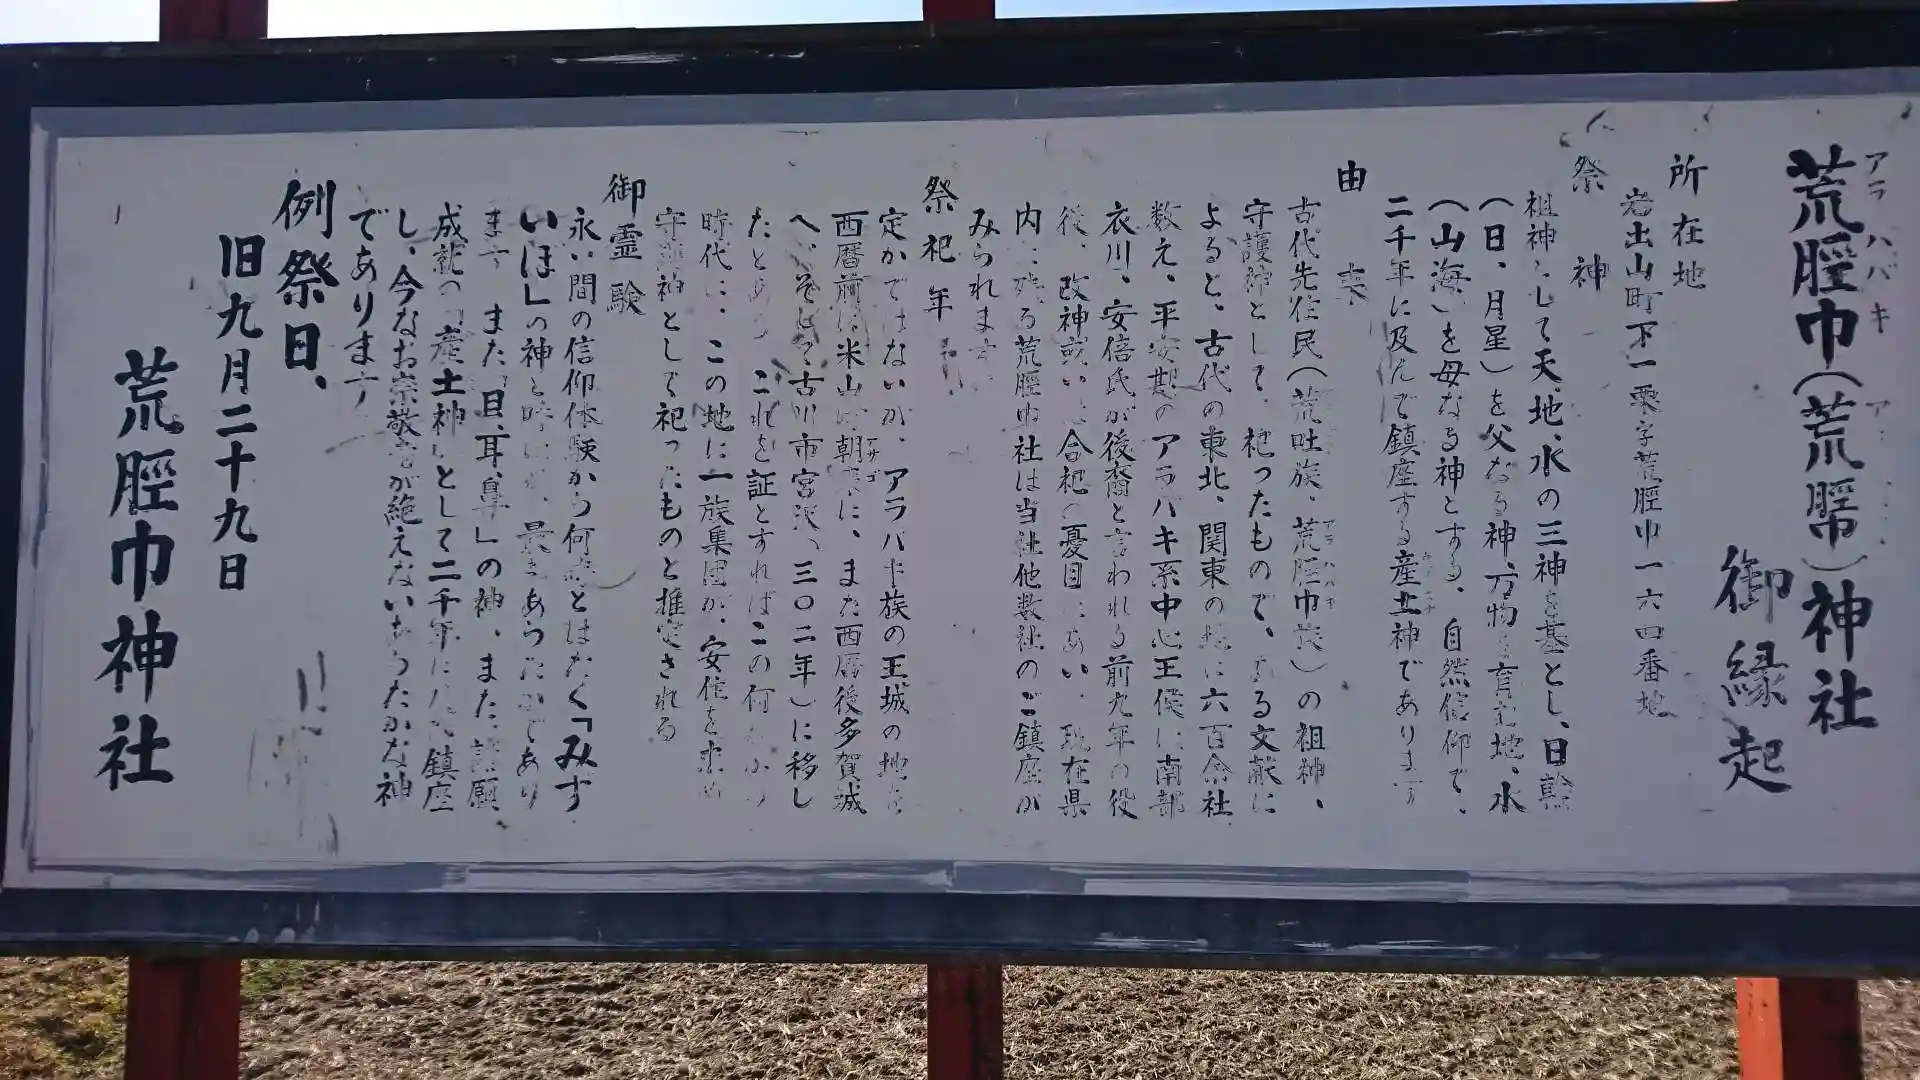 荒脛巾(荒脛帯)神社
御縁起
所在地
岩出山町下一栗字荒脛巾一六四番地
祭神
祖神として天、地、水の三神を基とし、日
(日、月星)を父なる神、万物を育む地、水
(山海)を母なる神とする、自然信仰で、
二千年に及んで鎮座する産土神であります
由来
古代先住民(荒吐族、荒脛巾族)の祖神、
守護神として、祀ったもので、ある文献に
よると、古代の東北、関東の地に六百余社
数え、平安期のアラハキ系中心王侯に南部
衣川、安倍氏が後裔と言われる前九年の役
後、改神或いは合祀の憂目にあい、現在県
内に残る荒脛巾社は当社他数社のご鎮座が
みられます
祭祀年
定かではないが、アラバキ族の王城の地を
西暦前は米山町朝来に、また西暦後多賀城
へ、そして古川市宮沢へ三〇二年)に移し
たとあり これを証とすればこの何れかの
時代に、この地に一族集団が、安住を求め
守護神として祀ったものと推定される
御霊験
永い間の信仰体験から何時とはなく「みず
いぼ」の神と時には、最もあらたかであり
ます また「目、耳、鼻」の神、また諸願
成就の「産土神」として二千年に及ぶ鎮座
し、今なお崇敬者が絶えないあらたかな神
であります
例祭日、
旧九月二十九日
荒脛巾神社